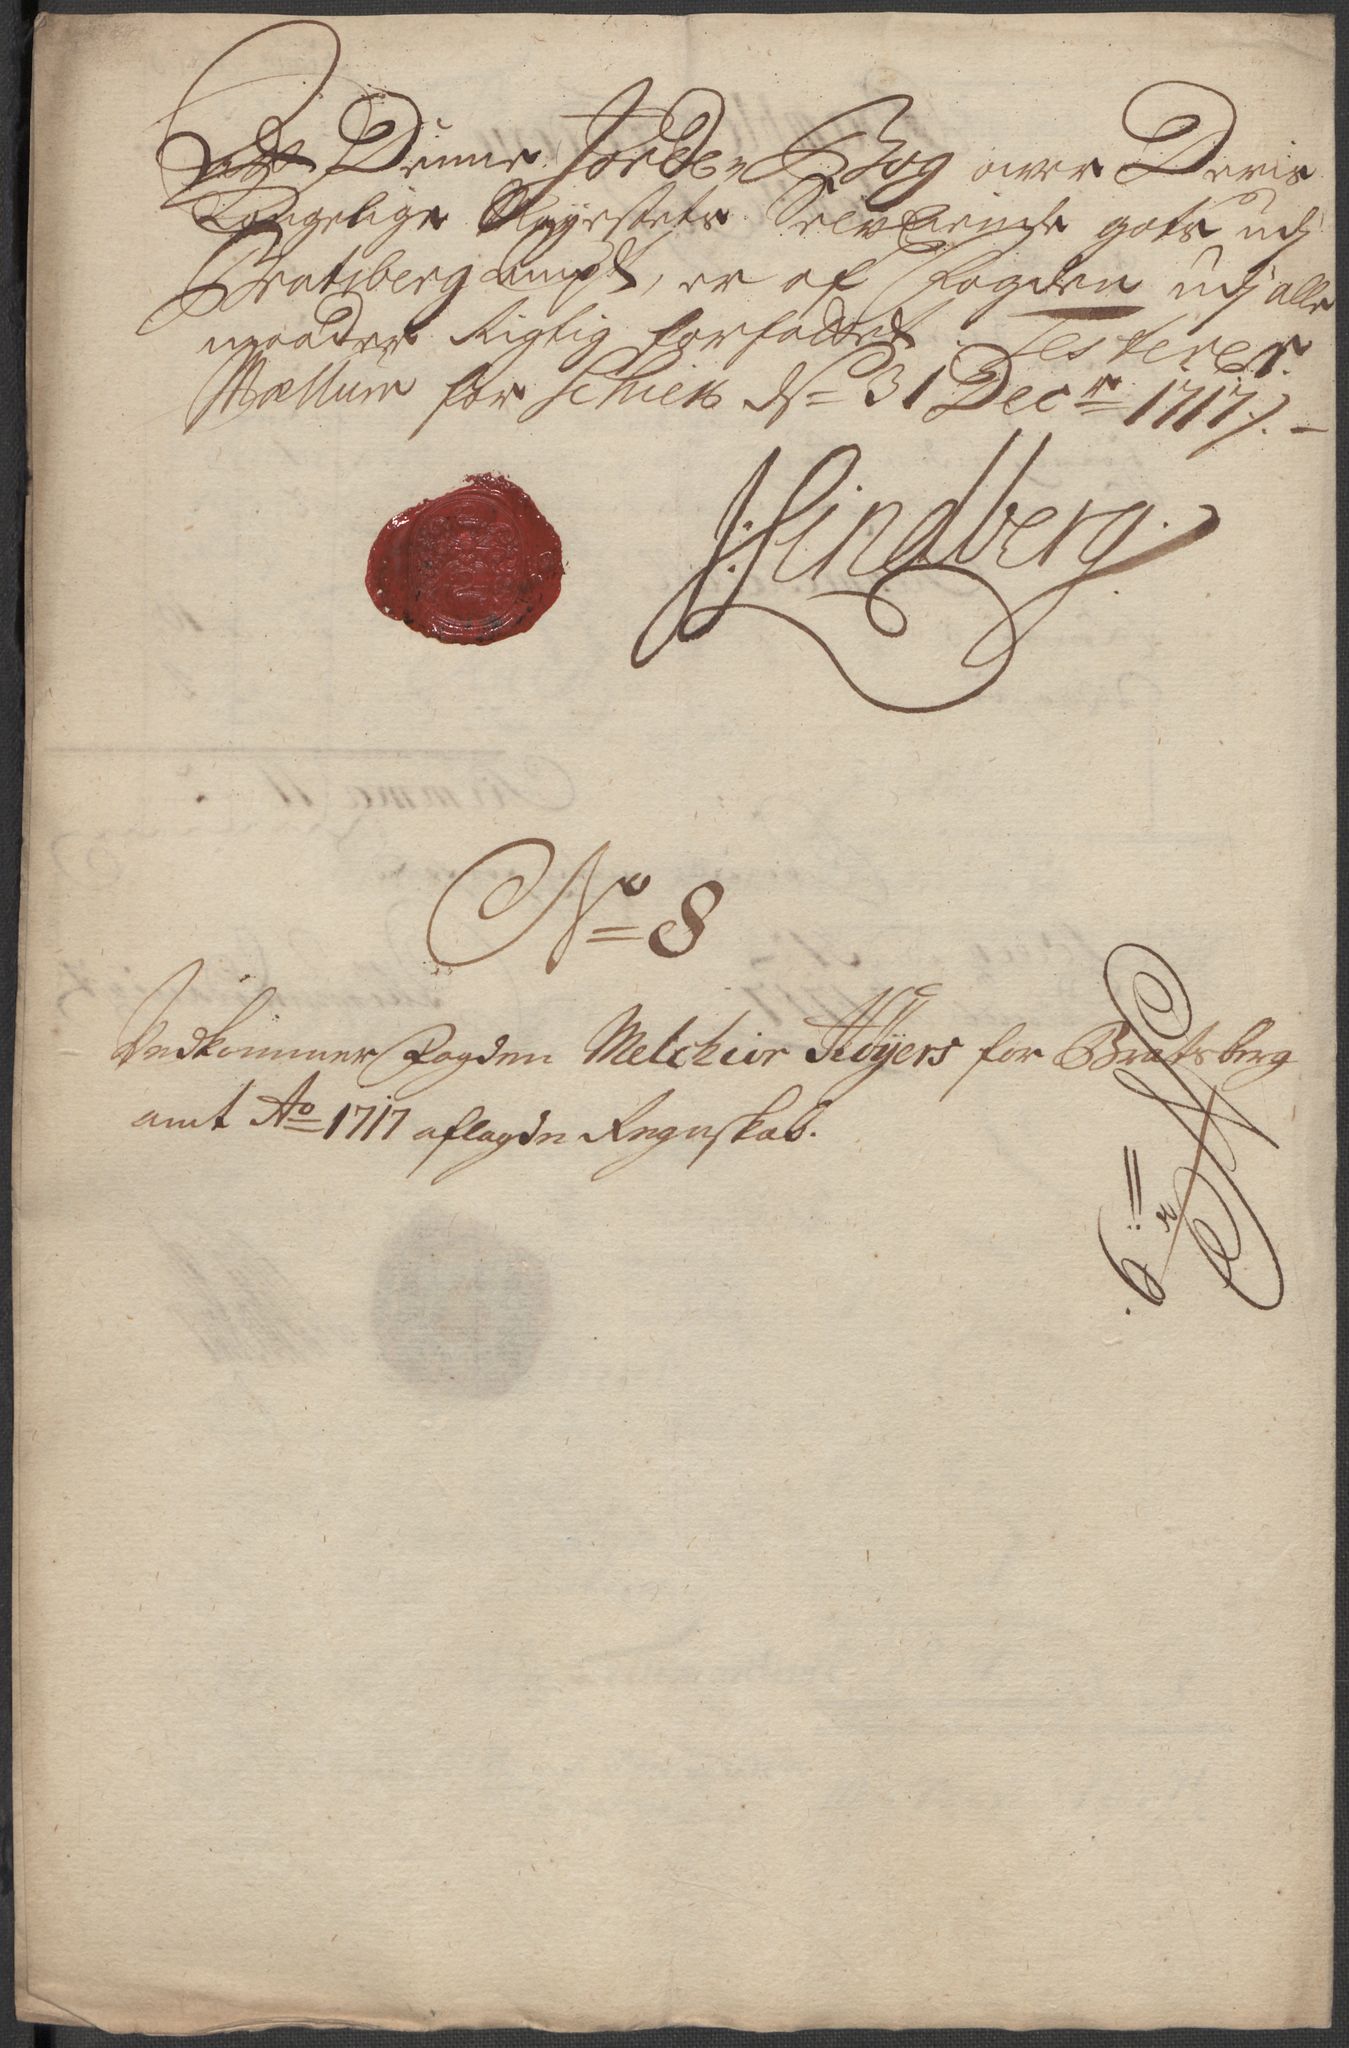 At Denne Jorde Bog over Deris
Kongelige Mayestets Selv Eiende gots udj
Bratsberg ampt, er af Fogden udj alle
maader Rigtig forfattet. Testerer.
Mællum for Schien d. 31 Decr 1717. –
J: Lindberg.
No 8
Vedkommer Fogden Melchior Høyers for Bratsberg
amt Ao 1717 aflagde Regnskab.